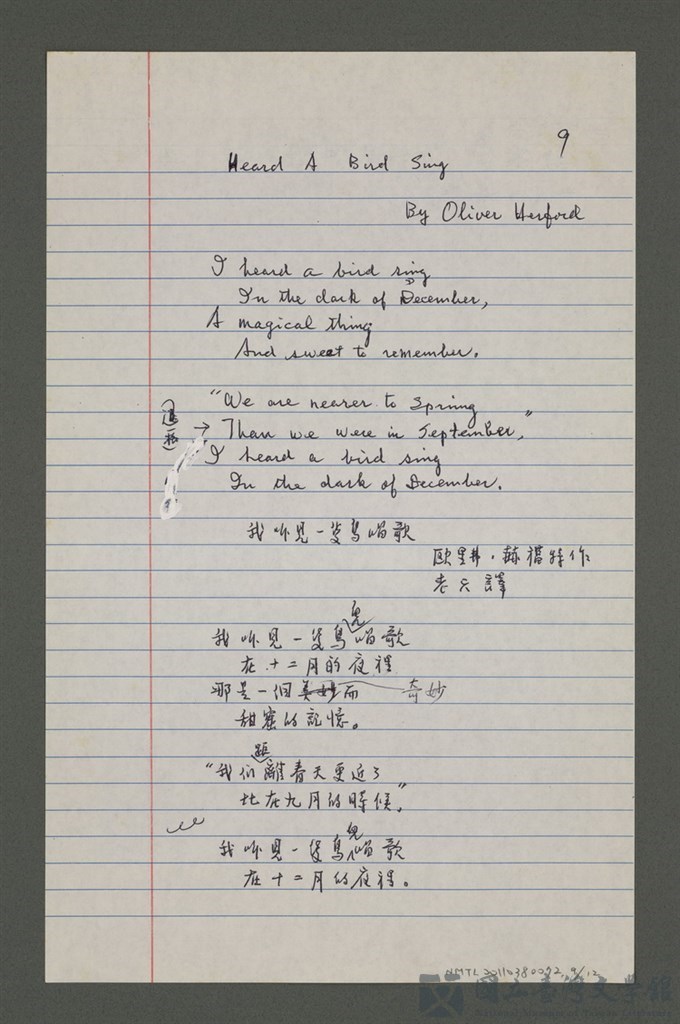 9
Heard A Bird Sing
By Oliver Herford
I heard a bird sing
In the dark of December,
A magical thing
And sweet to remember.
"We are nearer to Spring
Than we were in September,"
I heard a bird sing
In the dark of December.
我听見一隻鳥唱歌
欧里弗·赫福特作
老 譯
我听見一隻鳥兒唱歌
在十二月的夜裡
那是一個奇妙而
甜蜜的記憶。
"我们距離春天更近了
比在九月的時候,"
我听見一隻鳥兒唱歌
在十二月的夜裡。
NMTL 20110380072, 9/12
國立臺灣文學館
National Museum of Taiwan Literature